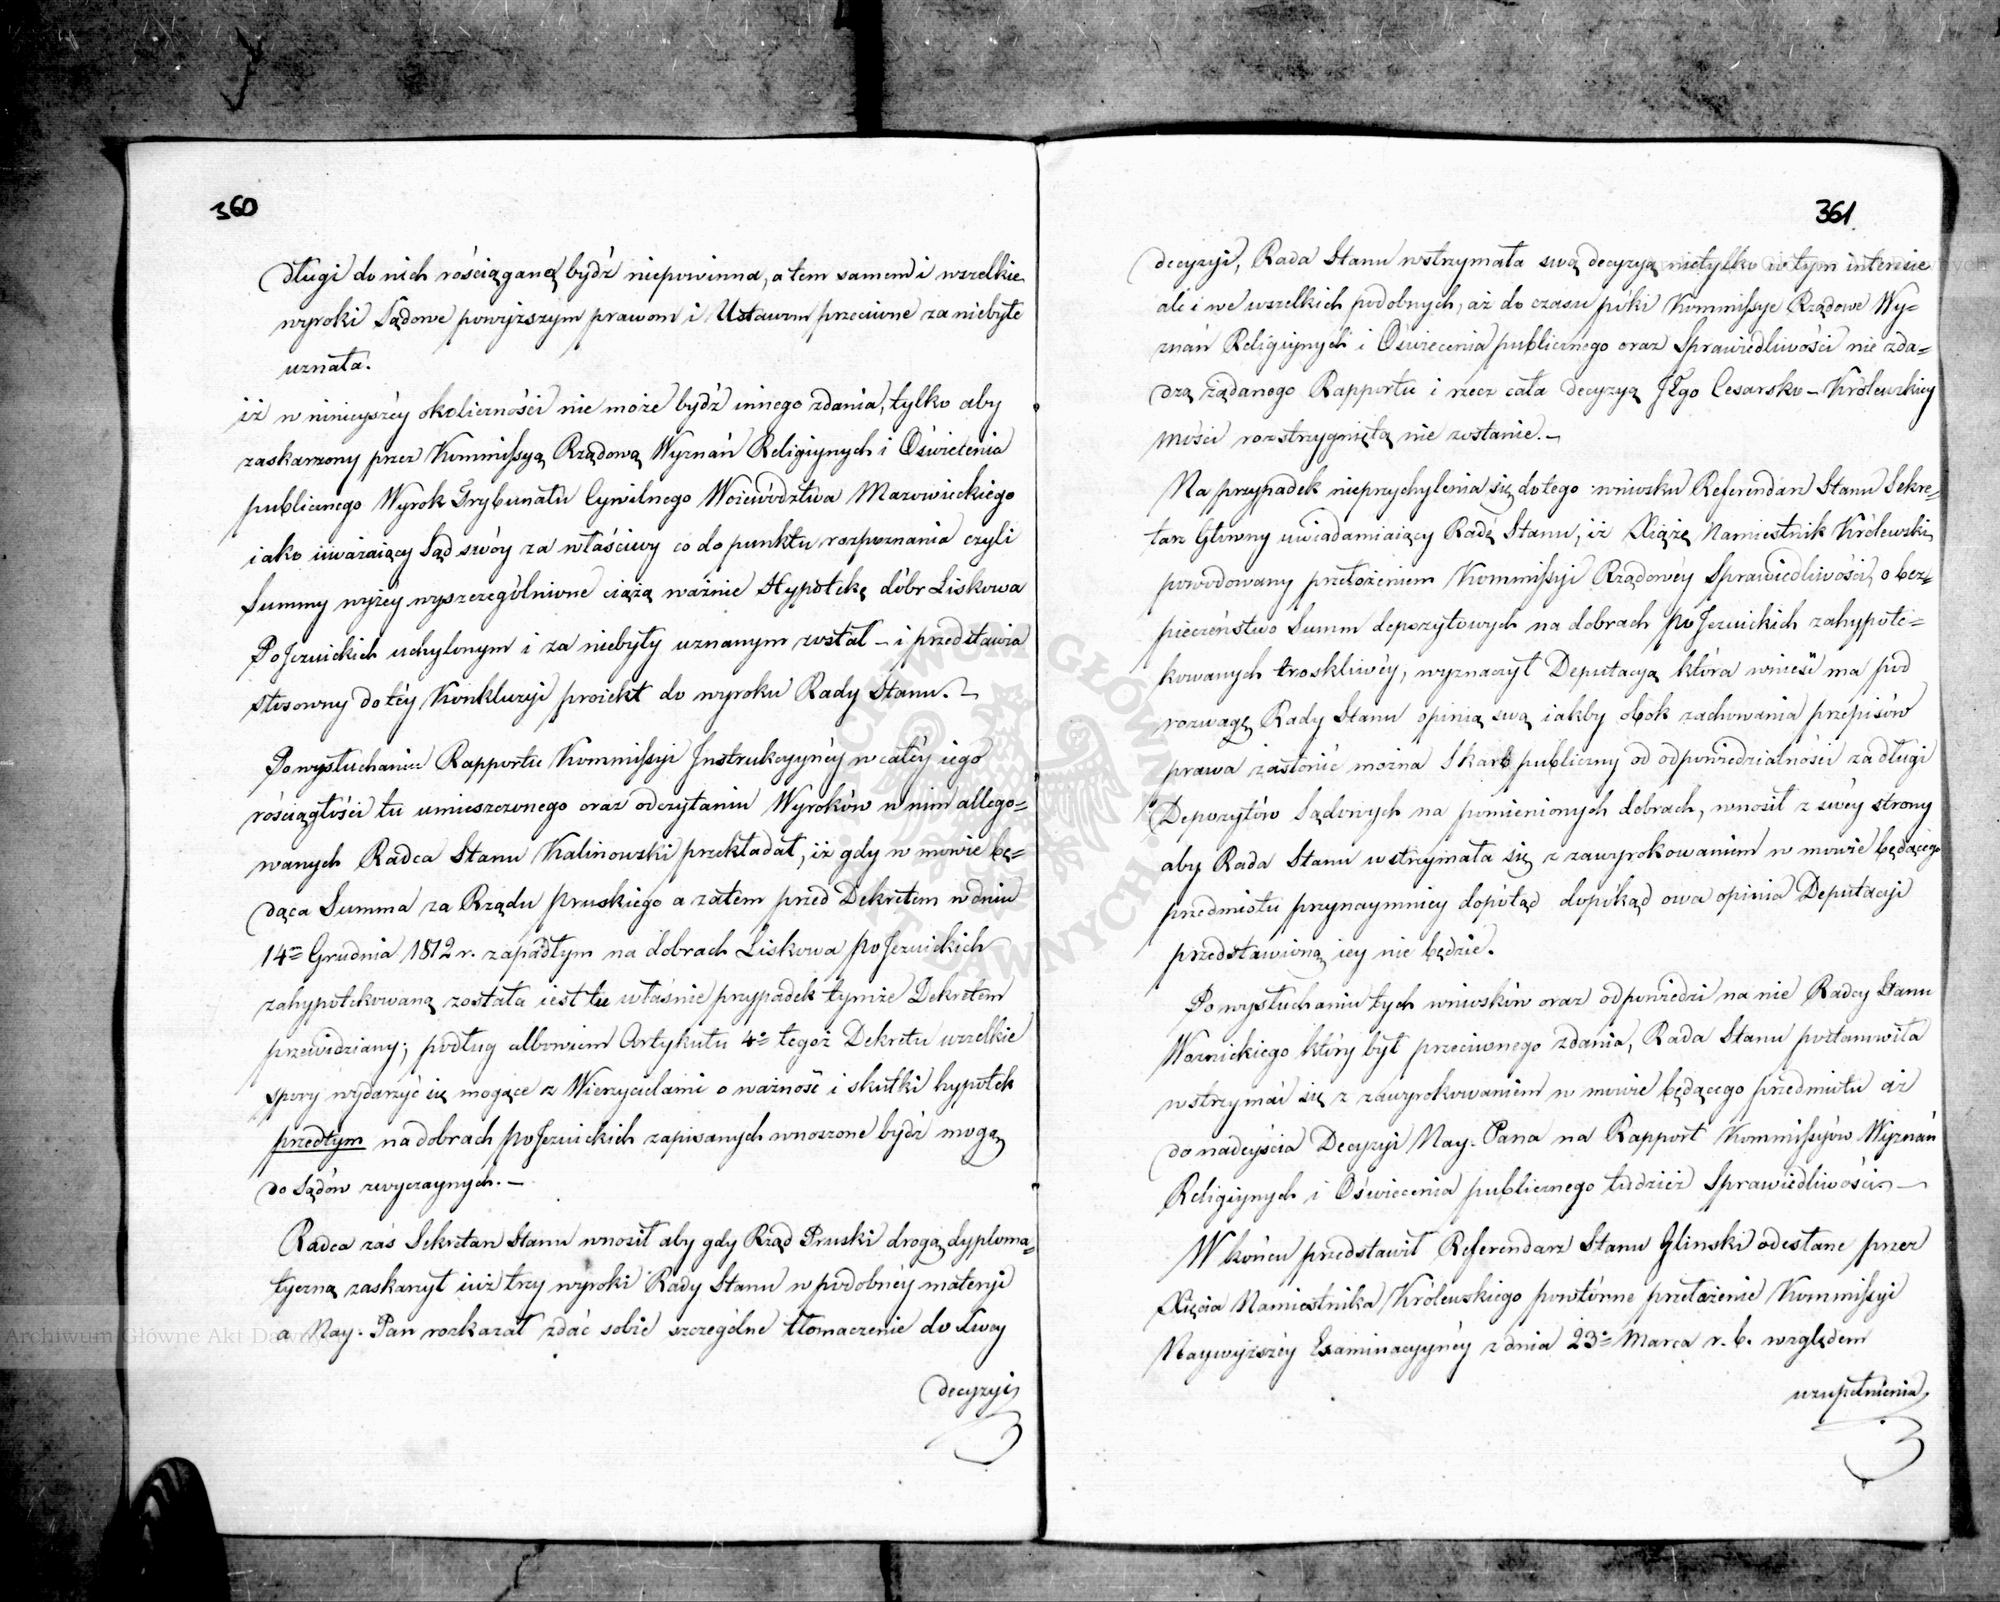 360
długi do nich rościąganą bydź niepowinna, a tem samem i wszelkie
wyroki Sądowe powyższym prawom i Ustawom przeciwne za niebyłe
uznała.
iż w ninieyszéy okoliczności nie może bydź innego zdania, tylko aby
zaskarżony przez Kommissyą Rządową Wyznań Religiynych i Oświecenia
publicznego Wyrok Trybunału Cywilnego Woiewództwa Mazowieckiego
iako uważaiący Sąd swóy za właściwy co do punktu rozpoznania czyli
Summy wyżéy wyszczególnione ciążą ważnie Hypotekę dóbr Liskowa
PoJezuickich uchylonym i za niebyły uznanym został – i przedstawia
stosowny do téy Konkluzyi proiekt do wyroku Rady Stanu. –
Po wysłuchaniu Rapportu Kommissyi Instrukcyynéy w całéy iego
rościągłości tu umieszczonego oraz odczytaniu Wyroków w nim allego=
wanych Radca Stanu Kalinowski przekładał, iż gdy w mowie bę=
dąca Summa za Rządu Pruskiego a zatem przed Dekretem w dniu
14m Grudnia 1812 r. zapadłym na dobrach Liskowa poJezuickich
zahypotekowaną została iest tu właśnie przypadek tymże Dekretem
przewidziany; podług albowiem Artykułu 4o tegoż Dekretu wszelkie
spory wydarzyć się mogące z Wierzycielami o ważność i skutki hypotek
przedtym na dobrach poJezuickich zapisanych wnoszone bydź mogą
do Sądów zwyczaynych. –
Radca zaś Sekretarz Stanu wnosił aby gdy Rząd Pruski drogą dyploma=
tyczną zaskarżył iuż trzy wyroki Rady Stanu w podobnéy materyi
a Nay. Pan rozkazał zdać sobie szczególne tłomaczenie do Swey
decyzyi,
361
decyzyi, Rada Stanu wstrzymała swą decyzyą nietylko w tym interesie
ale i we wszelkich podobnych, aż do czasu póki Kommissye Rządowe Wy=
znań Religiynych i Oświecenia publicznego oraz Sprawiedliwości nie zda=
dzą żądanego Rapportu i rzecz cała decyzyą JEgo Cesarsko – Królewskiey
Mości rozstrzygniętą nie zostanie. –
Na przypadek nieprzychylenia się do tego wniosku Referendarz Stanu Sekre=
tarz Główny uwiadamiaiący Radę Stanu, iż Xiążę Namiestnik Królewski,
powodowany przełożeniem Kommissyi Rządowéy Sprawiedliwości, o bez=
pieczeństwo Summ depozytowych na dobrach poJezuickich zahypote=
kowanych troskliwéy, wyznaczył Deputacyą która wnieść ma pod
rozwagę Rady Stanu opinią swą iakby obok zachowania przepisów
prawa zasłonić można Skarb publiczny od odpowiedzialności za długi
Depozytów Sądowych na pomienionych dobrach, wnosił z swéy strony
aby Rada Stanu wstrzymała się z zawyrokowaniem w mowie będącego
przedmiotu przynaymniey dopótąd dopókąd owa opinia Deputacyi
przedstawioną iey nie będzie.
Po wysłuchaniu tych wniosków oraz odpowiedzi na nie Radcy Stanu
Woznickiego który był przeciwnego zdania, Rada Stanu postanowiła
wstrzymać się z zawyrokowaniem w mowie będącego przedmiotu aż
do nadeyścia Decyzyi Nay. Pana na Rapport Kommissyów Wyznań
Religiynych i Oświecenia publicznego tudzież Sprawiedliwości. –
W końcu przedstawił Referendarz Stanu Glinski odesłane przez
Xięcia Namiestnika Królewskiego powtórne przełożenie Kommissyi
Naywyższéy Examinacyynéy z dnia 23o Marca r. b. względem
uzupełnienia